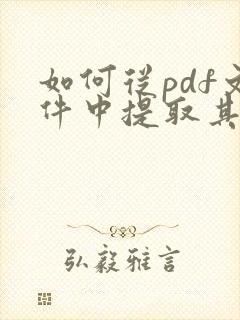 如何從pdf文
件中提取其
弘毅雅言